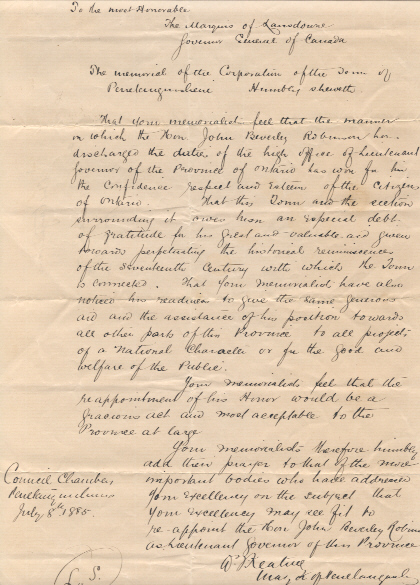 To the most Honorable
The Marquis of Lansdowne
Governor General of Canada
The memorial of the Corporation of the Town of
Penetanguishene Humbly sheweth
That Your memorialists feel that the manner
in which the Hon John Beverly Robinson has
discharged the duties of the high office of Lieutenant
Governor of the Province of Ontario has won for him
the Confidence respect and Esteem of the Citizens
of Ontario. That this Town and the section
surrounding it owes him an Especial debt
of gratitude for his great and valuable aid given
towards perpetuating the historical reminiscences
of the Seventeenth Century with which the Town
is connected. That Your Memorialists have also
noticed his readiness to give the same generous
aid and the assistance of his position towards
all other parts of this Province to all projects
of a National Character or for the Good and
welfare of the Public.
Your Memorialists feel that the
reappointment of his Honor would be a
gracious act and most acceptable to the
Province at large
Your Memorialists therefore humbly
add their prayer to that of the more
important bodies who have addressed
Your Excellency on the subject that
Your Excellency may see fit to
re-appoint the Hon John Beverly Robinson
as Lieutenant Governor of this Province
Council Chamber
Penetanguishene
July 8th 1885.
W Keating
Mayor of Penetanguishene
L.S.